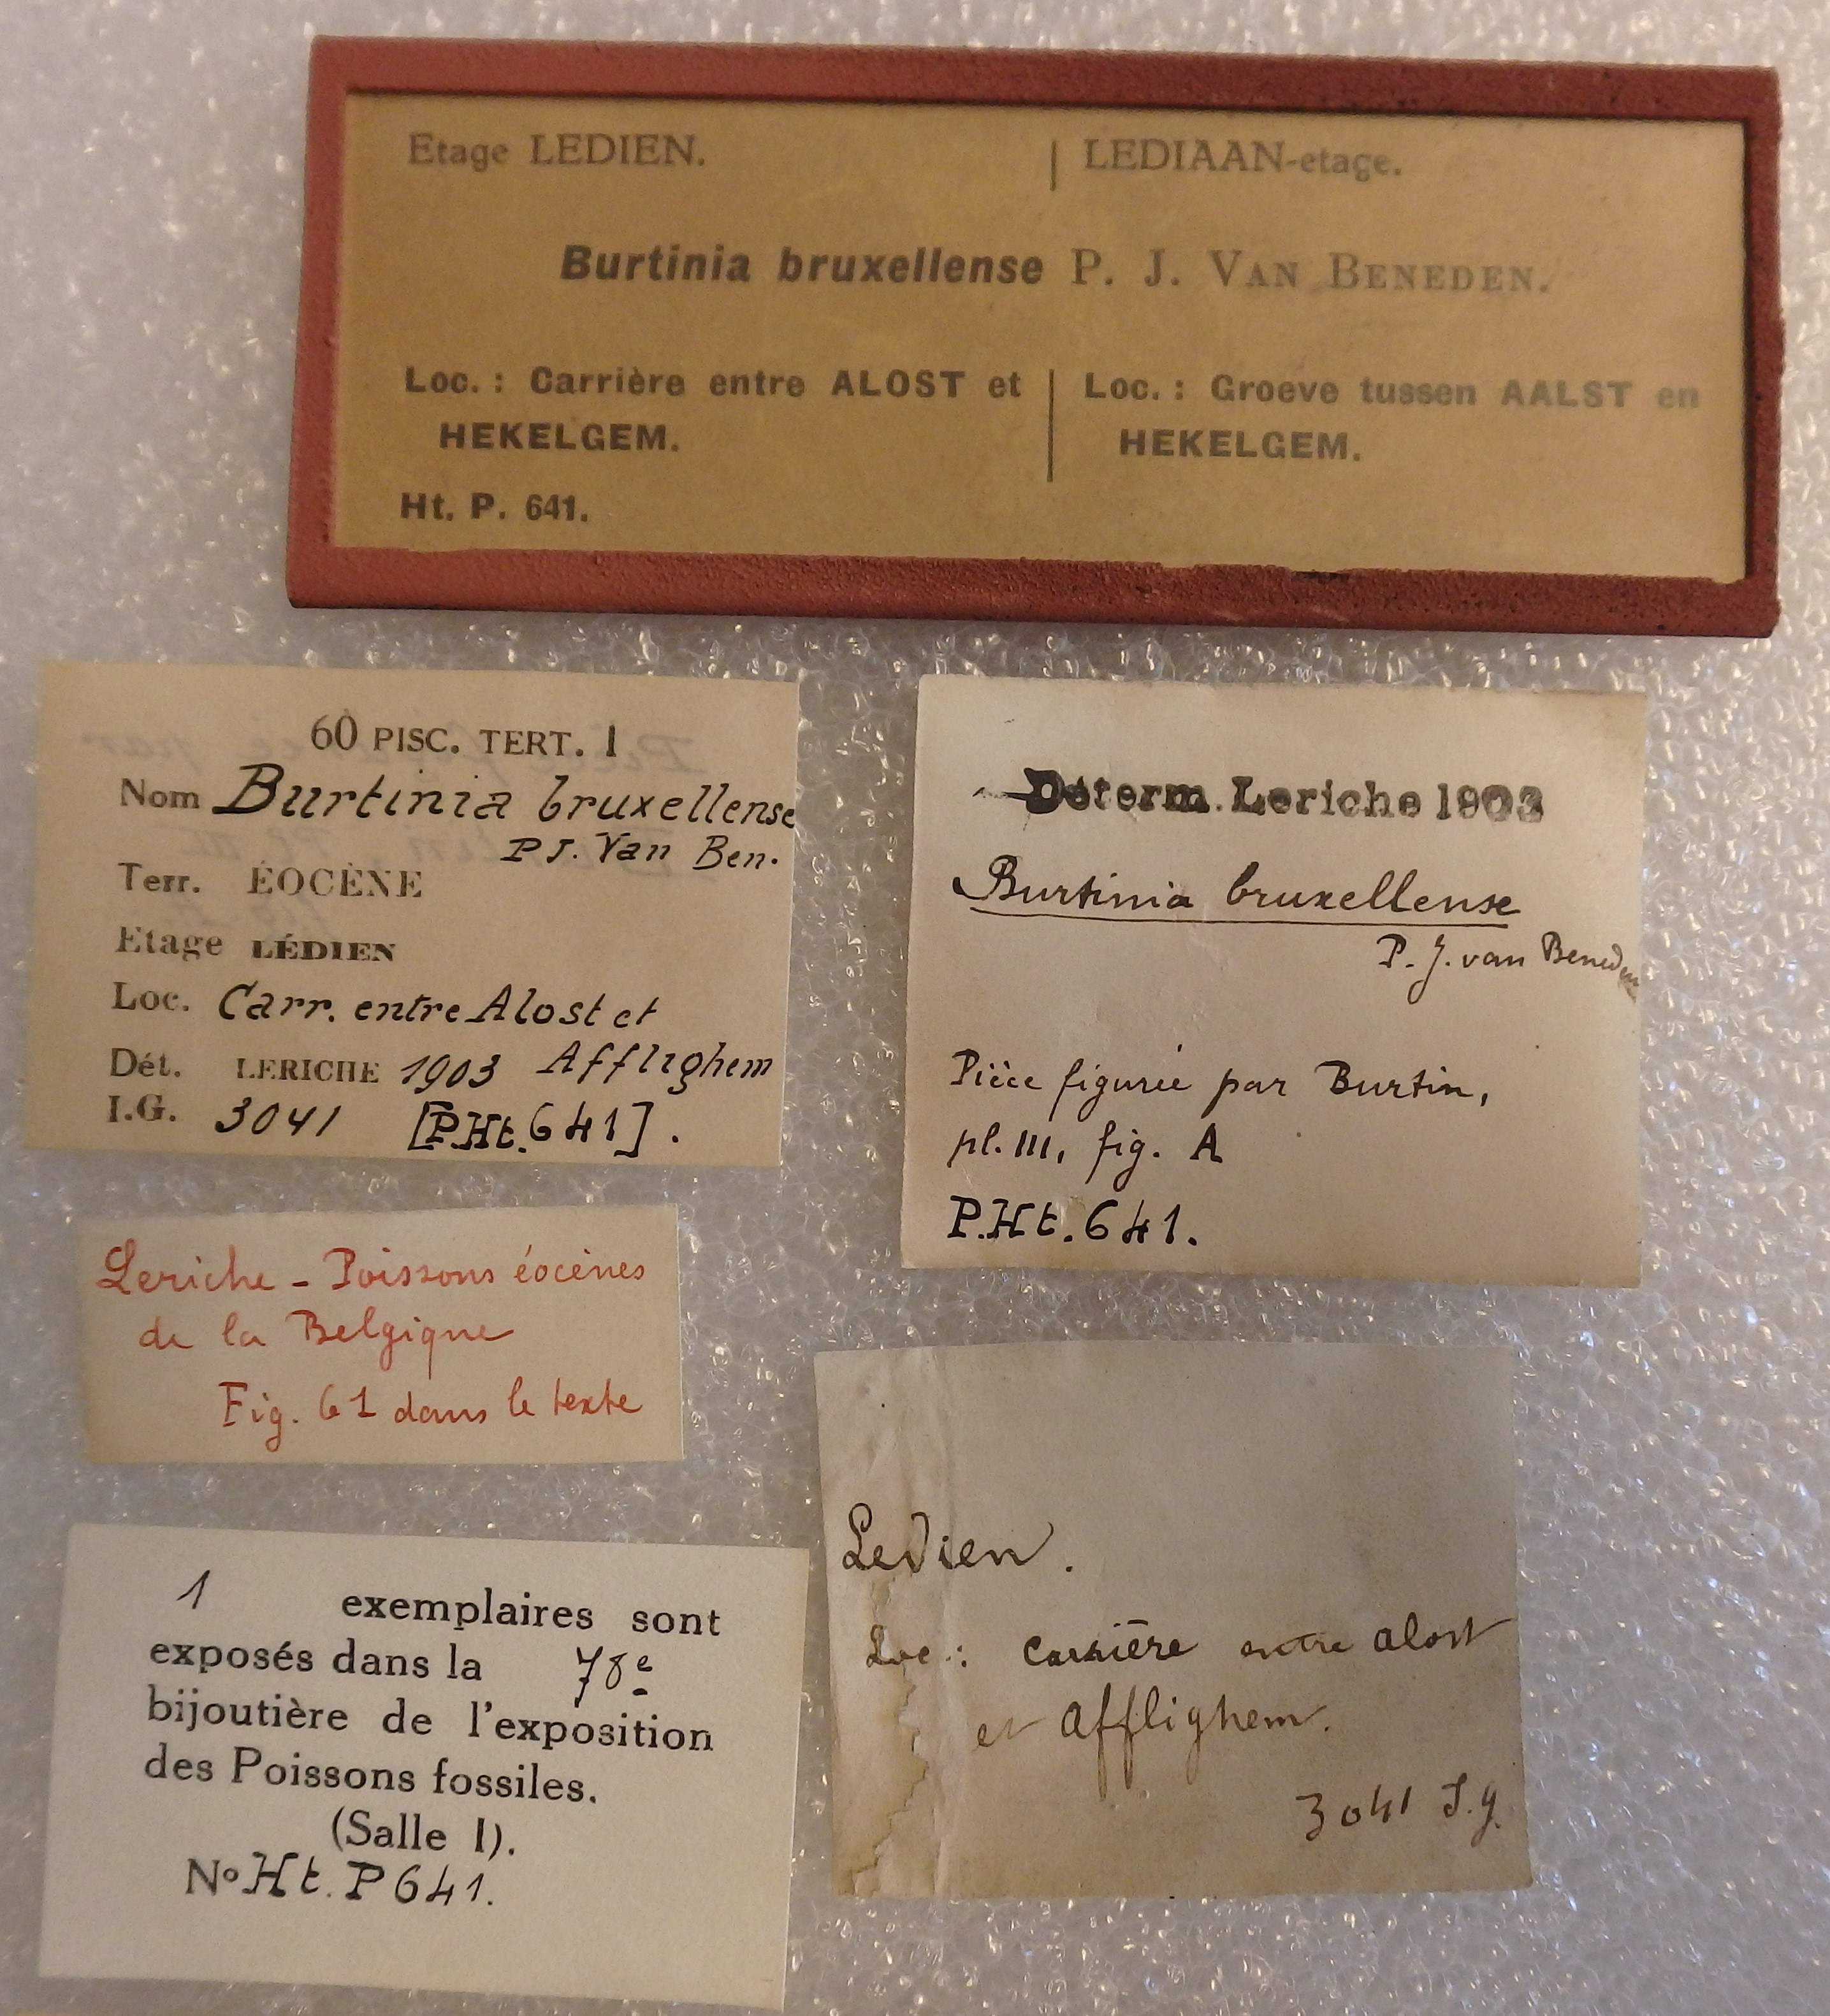 Etage LEDIEN. | LEDIAAN-etage.
Burtinia bruxellense P. J. VAN BENEDEN.
Loc. : Carrière entre ALOST et
HEKELGEM.
Loc. : Groeve tussen AALST en
HEKELGEM.
Ht. P. 641.
60 PISC. TERT. 1
Nom Burtinia bruxellense
P J. Van Ben.
Terr. ÉOCÈNE
Etage LÉDIEN
Loc. Carr. entre Alost et
Dét. LERICHE 1903 Afflighem
I.G. 3041 [P.Ht. 641].
Determ. Leriche 1903
Burtinia bruxellense
P. J. van Beneden
Pièce figurée par Burtin,
pl. III, fig. A
P.Ht. 641.
Leriche - Poissons éocènes
de la Belgique
Fig. 61 dans le texte
1 exemplaires sont
exposés dans la 78e
bijoutière de l'exposition
des Poissons fossiles.
(Salle I).
No Ht. P 641.
Ledien.
Loc : Carrière entre alost
et afflighem.
3041 I.g.